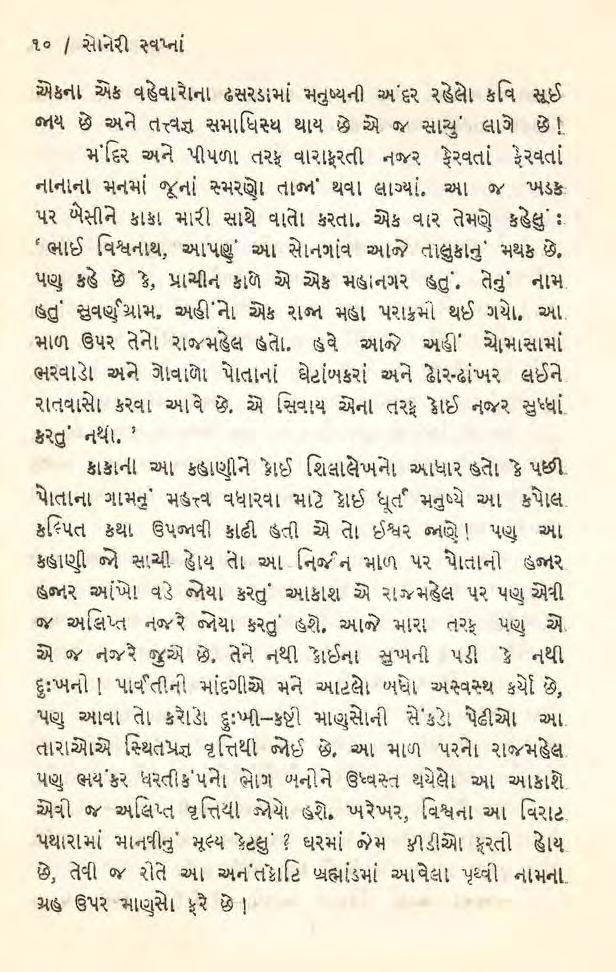 ૧૦ / સોનેરી સ્વપ્નાં
એકના એક વહેવારોના ઢસરડામાં મનુષ્યની અંદર રહેલો કવિ સૂઈ
જાય છે અને તત્ત્વજ્ઞ સમાધિસ્થ થાય છે એ જ સાચું લાગે છે!
મંદિર અને પીપળા તરફ વારાફરતી નજર ફેરવતાં ફેરવતાં
નાનાના મનમાં જૂનાં સ્મરણો તાજાં થવા લાગ્યાં. આ જ ખડક
પર બેસીને કાકા મારી સાથે વાતો કરતા. એક વાર તેમણે કહેલું :
‘ ભાઈ વિશ્વનાથ, આપણું આ સોનગાંવ આજે તાલુકાનું મથક છે.
પણ કહે છે કે, પ્રાચીન કાળે એ એક મહાનગર હતું. તેનું નામ
હતું સુવર્ણગ્રામ. અહીંનો એક રાજા મહા પરાક્રમી થઈ ગયો. આ
માળ ઉપર તેનો રાજમહેલ હતો. હવે આજે અહીં ચોમાસામાં
ભરવાડો અને ગોવાળો પોતાનાં ઘેટાંબકરાં અને ઢોર-ઢાંખર લઈને
રાતવાસો કરવા આવે છે. એ સિવાય એના તરફ કોઈ નજર સુધ્ધાં
કરતું નથી. ’
કાકાની આ કહાણીને કોઈ શિલાલેખનો આધાર હતો કે પછી
પોતાના ગામનું મહત્ત્વ વધારવા માટે કોઈ ધૂર્ત મનુષ્યે આ કપોલ
કલ્પિત કથા ઉપજાવી કાઢી હતી એ તો ઈશ્વર જાણે! પણ આ
કહાણી જો સાચી હોય તો આ નિર્જન માળ પર પોતાની હજાર
હજાર આંખો વડે જોયા કરતું આકાશ એ રાજમહેલ પર પણ એવી
જ અલિપ્ત નજરે જોયા કરતું હશે. આજે મારા તરફ પણ એ
એ જ નજરે જુએ છે. તેને નથી કોઈના સુખની પડી કે નથી
દુઃખની! પાર્વતીની માંદગીએ મને આટલો બધો અસ્વસ્થ કર્યો છે,
પણ આવા તો કરોડો દુઃખી–કષ્ટી માણસોની સેંકડો પેઢીઓ આ
તારાઓએ સ્થિતપ્રજ્ઞ વૃત્તિથી જોઈ છે. આ માળ પરનો રાજમહેલ
પણ ભયંકર ધરતીકંપનો ભોગ બનીને ઉધ્વસ્ત થયેલો આ આકાશે
એવી જ અલિપ્ત વૃત્તિથી જોયો હશે. ખરેખર, વિશ્વના આ વિરાટ
પથારામાં માનવીનું મૂલ્ય કેટલું ? ઘરમાં જેમ કીડીઓ ફરતી હોય
છે, તેવી જ રીતે આ અનંતકોટિ બ્રહ્માંડમાં આવેલા પૃથ્વી નામના
ગ્રહ ઉપર માણસો ફરે છે!